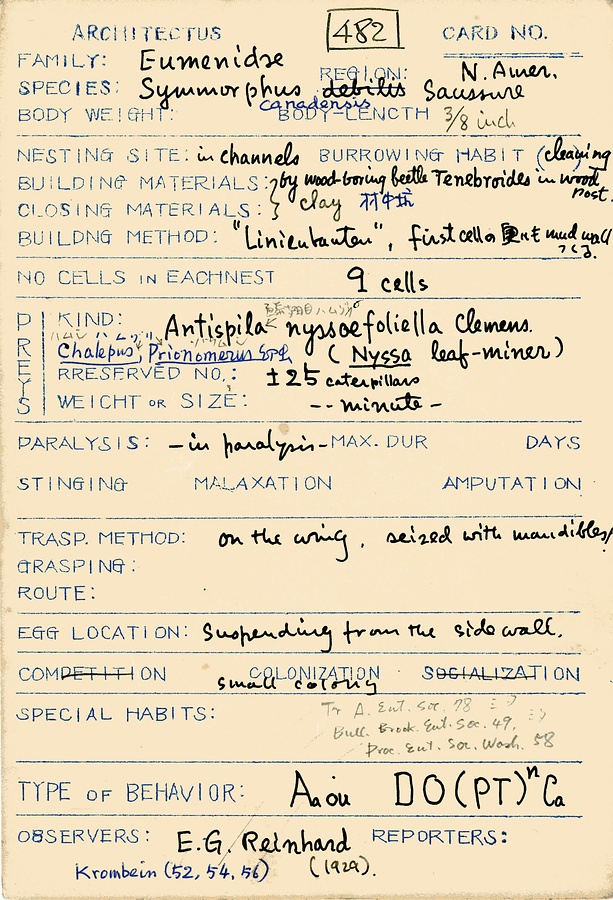 ARCHITECTUS 482 CARD NO.
FAMILY: Eumenidae
REGION: N. Amer.
SPECIES: Symmorphus debilis Saussure
canadensis
BODY WEIGHT: BODY-LENGTH 3/8 inch
NESTING SITE: in channels BURROWING HABIT (cleaning
BUILDING MATERIALS: by wood-boring beetle Tenebroides in wood
post.
CLOSING MATERIALS: clay
BUILDNG METHOD: "Linienbauten", first cell mud wall
NO CELLS IN EACHNEST 9 cells
PREYS
KIND: Antispila nyssaefoliella Clemens.
Chalepus, Prionomerus (Nyssa leaf-miner)
RRESERVED NO.: ±25 caterpillars
WEIGHT OR SIZE: -- minute -
PARALYSIS: - in paralysis - MAX. DUR DAYS
STINGING MALAXATION AMPUTATION
TRASP. METHOD: on the wing, seized with mandibles
GRASPING:
ROUTE:
EGG LOCATION: Suspending from the side wall.
COMPETITION COLONIZATION SOCIALIZATION
small colony
SPECIAL HABITS: Tr A. Ent. Soc. 78
Bull. Brook. Ent. Soc. 49,
Proc. Ent. Soc. Wash. 58
TYPE OF BEHAVIOR: Aaiou DO(PT)ⁿCa
OBSERVERS: E.G. Reinhard REPORTERS:
Krombein (52, 54, 56) (1929).